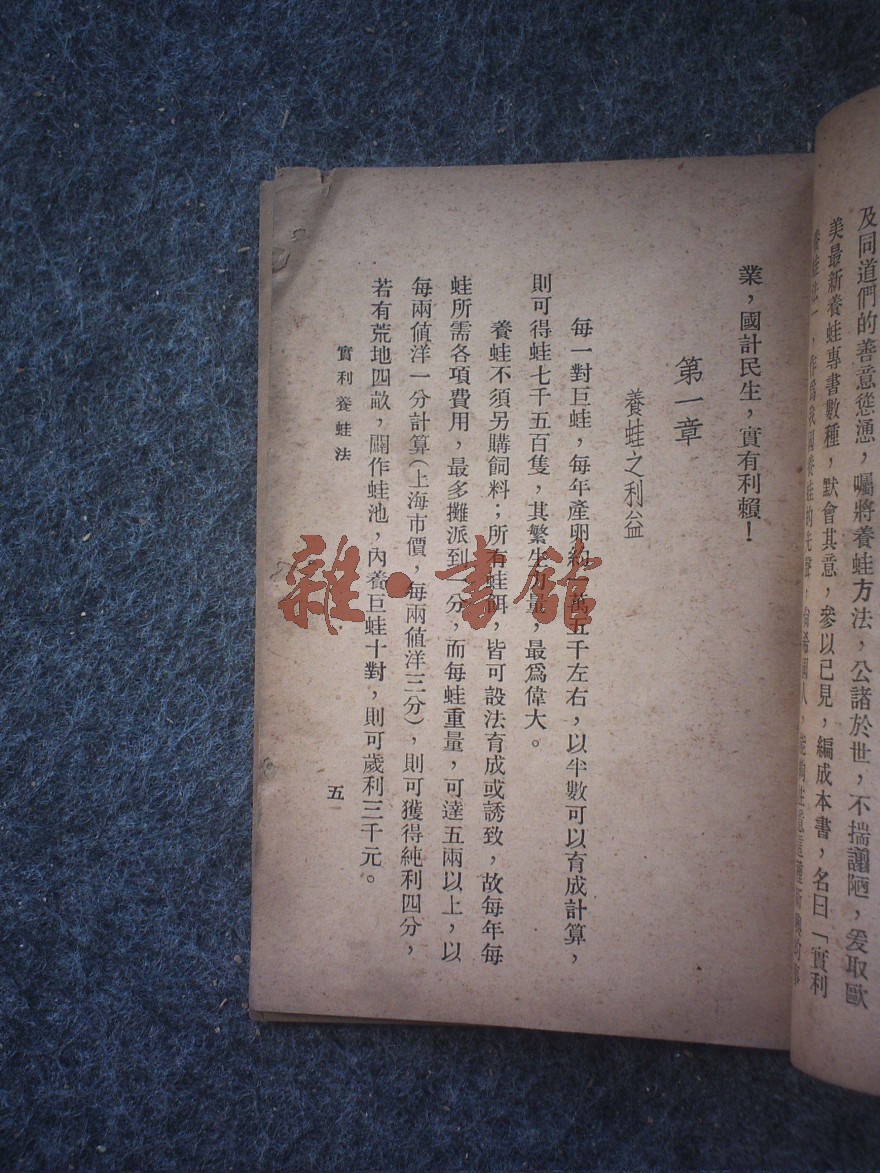 及同道們的善意慫慂，囑將養蛙方法，公諸於世，不揣謭陋，爰取歐
美最新養蛙專書數種，默會其意，參以已見，編成本書，名曰「實利
養蛙法」，作爲我國養蛙的先聲，
業，國計民生，實有利賴！
第一章
養蛙之利益
每一對巨蛙，每年產卵約一萬五千左右，以半數可以育成計算，
則可得蛙七千五百隻，其繁生力量，最爲偉大。
養蛙不須另購飼料；所有蛙餌，皆可設法育成或誘致，故每年每
蛙所需各項費用，最多攤派到一分，而每蛙重量，可達五兩以上，以
每兩値洋一分計算（上海市價，每兩値洋三分），則可獲得純利四分，
若有荒地四畝，闢作蛙池，內養巨蛙十對，則可歲利三千元。
實利養蛙法
五
雜·書館